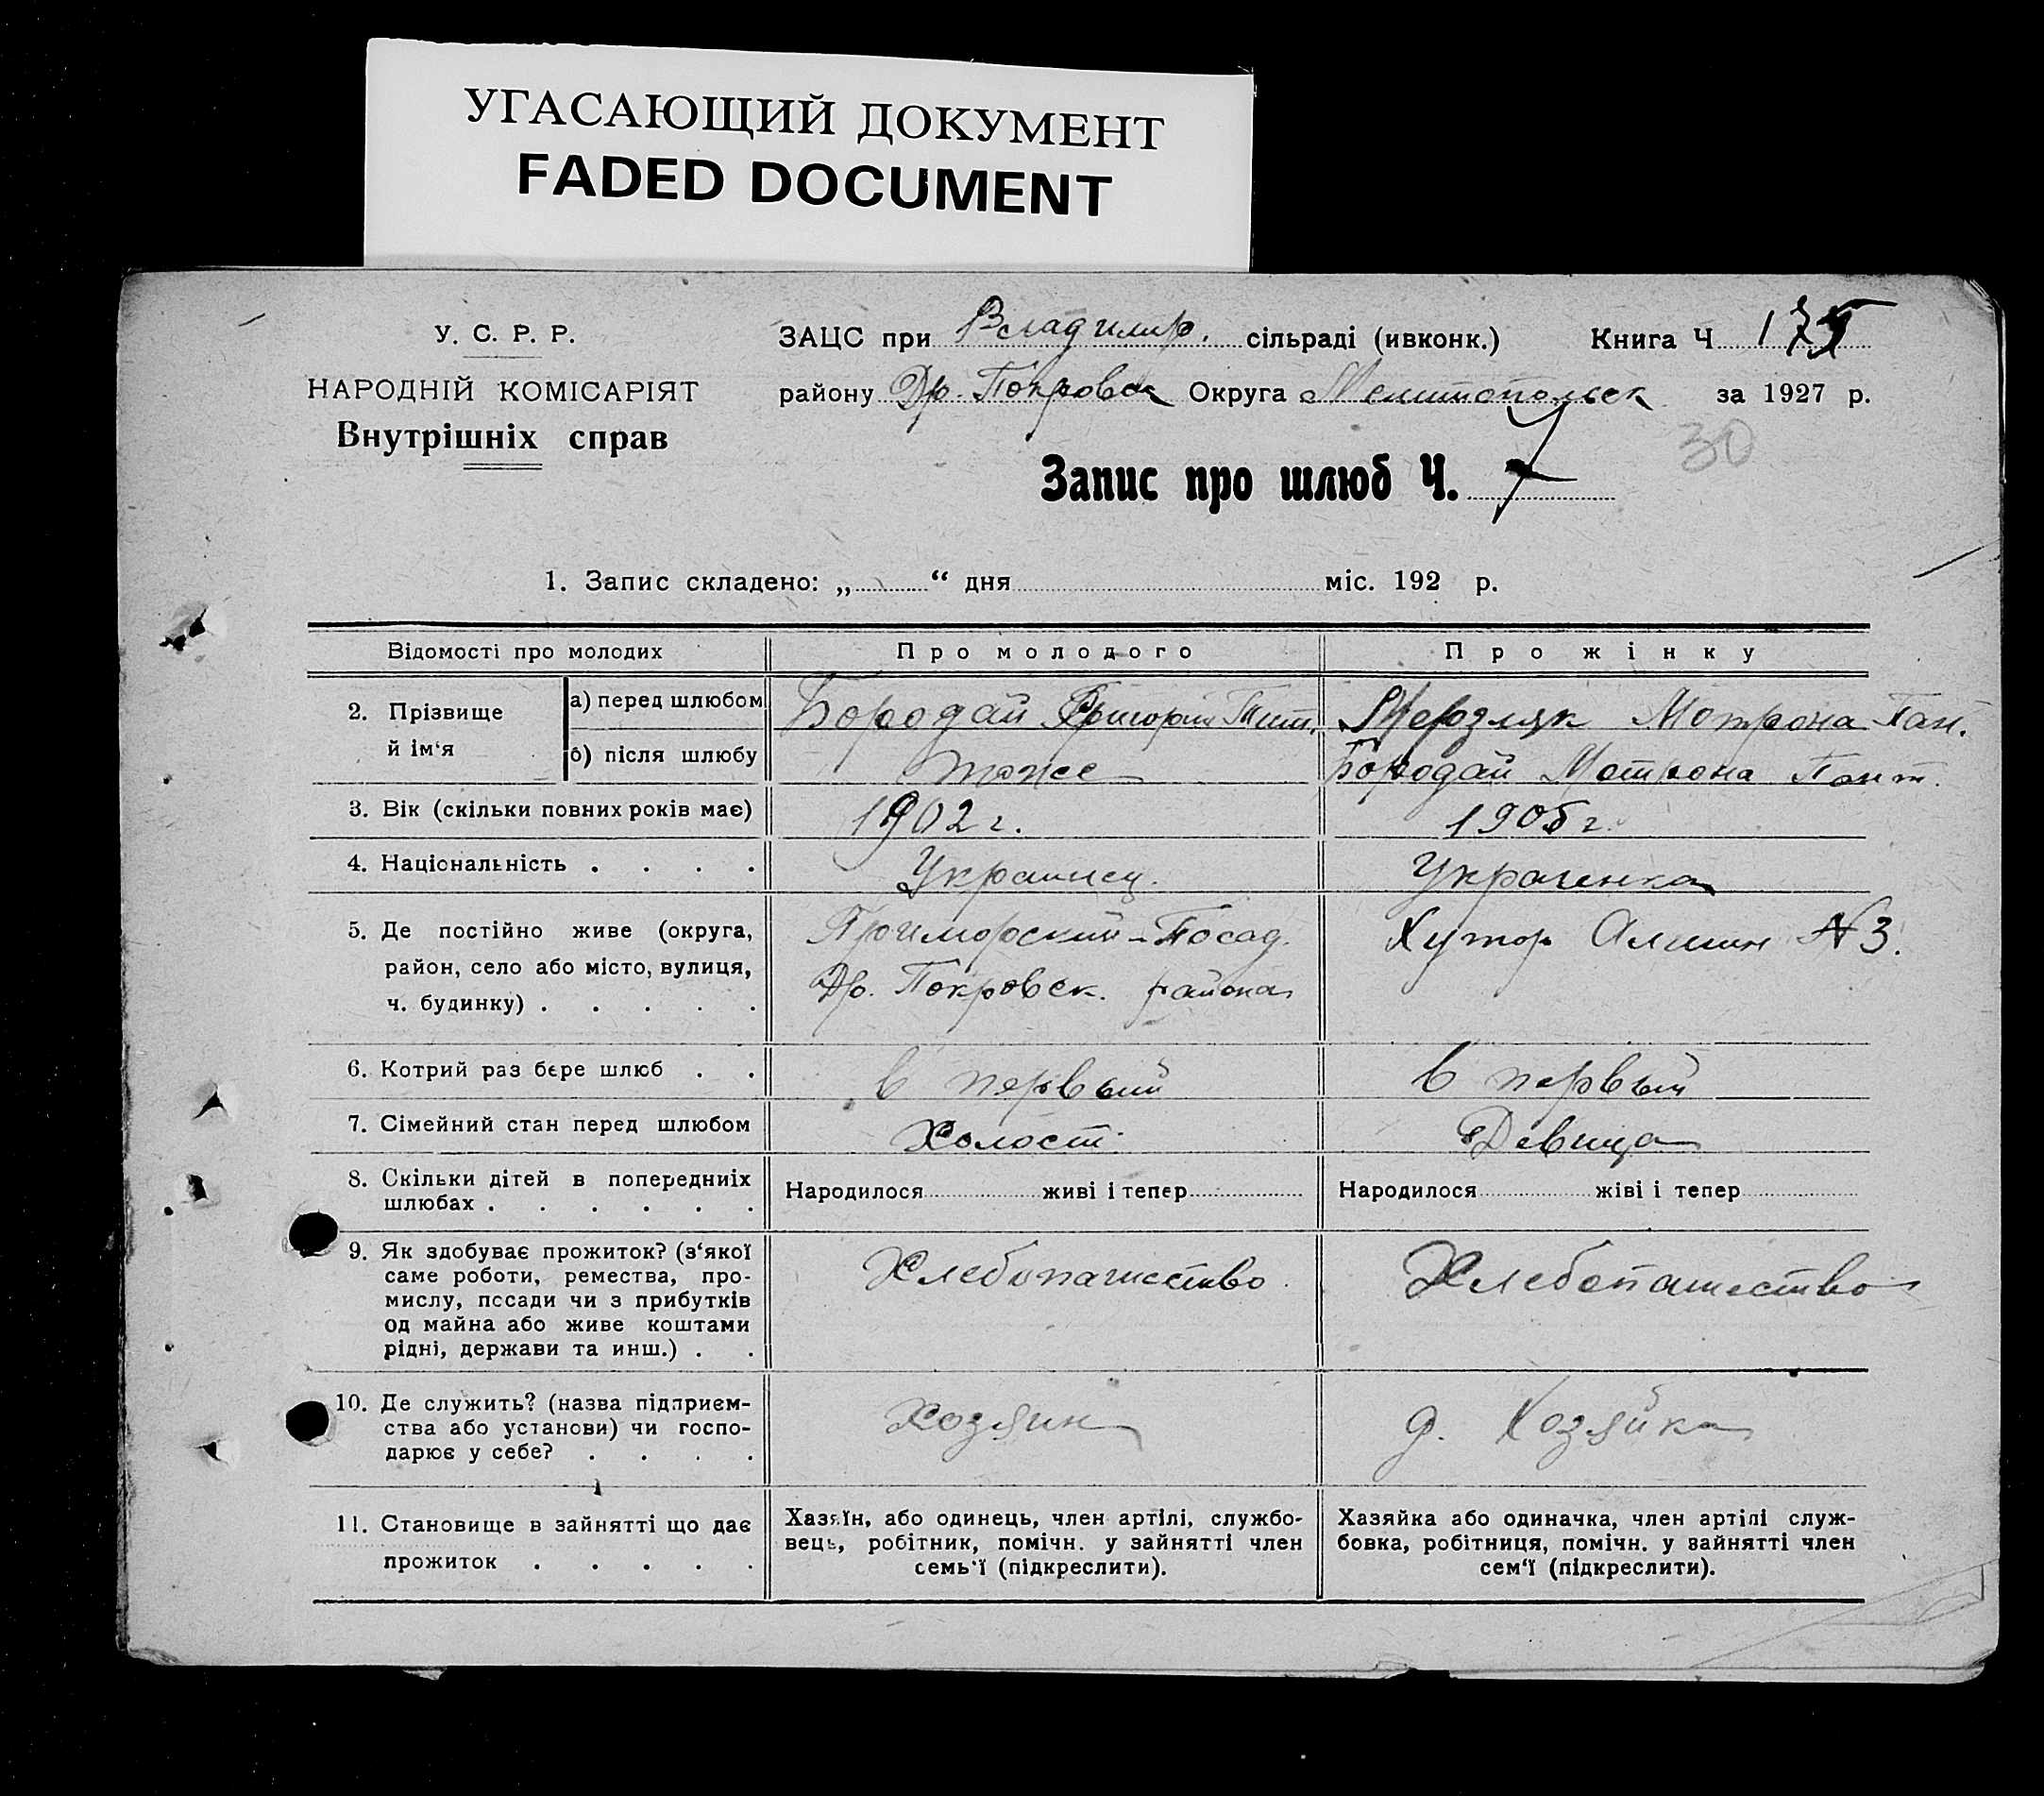 УГАСАЮЩИЙ ДОКУМЕНТ
FADED DOCUMENT
У. С. Р. Р.
НАРОДНІЙ КОМІСАРІЯТ
Внутрішніх справ
ЗАЦС при Владимир. сільраді (ивконк.) Книга Ч
району Др. Покровск Округа Мелитопольск за 1927 р.
30
Запис про шлюб Ч. 7
1. Запис складено: „ “ дня міс. 192 р.
Відомості про молодих Про молодого Про жінку
2. Прізвище й ім‘я
а) перед шлюбом Бородай Григорий Тит. Мотрона Пан.
б) після шлюбу тоже Бородай Мотрона Пант.
3. Вік (скільки повних років має) 1902 г. 1905 г.
4. Національність . . . . Украинец. Украиенка
5. Де постійно живе (округа, Приморский-Посад. Хутор №3.
район, село або місто, вулиця, Др. Покровск. района
ч. будинку) . . . . .
6. Котрий раз бере шлюб . . в первый в первый
7. Сімейний стан перед шлюбом Холост. Девица
8. Скільки дітей в попередниіх
шлюбах . . . . . .
Народилося живі і тепер Народилося жіві і тепер
9. Як здобуває прожиток? (з‘якої
саме роботи, ремества, про-
мислу, посади чи з прибутків
од майна або живе коштами
рідні, держави та инш.) . .
Хлебопашество Хлебопашество
10. Де служить? (назва підприєм-
ства або установи) чи госпо-
дарює у себе? . . . .
Хозяин д. Хозяйка
11. Становище в зайнятті що дає
прожиток . . . . .
Хазяїн, або одинець, член артілі, службо-
вець, робітник, помічн. у зайнятті член
семь‘ї (підкреслити).
Хазяйка або одиначка, член артілі служ-
бовка, робітниця, помічн. у зайнятті член
сем‘ї (підкреслити).